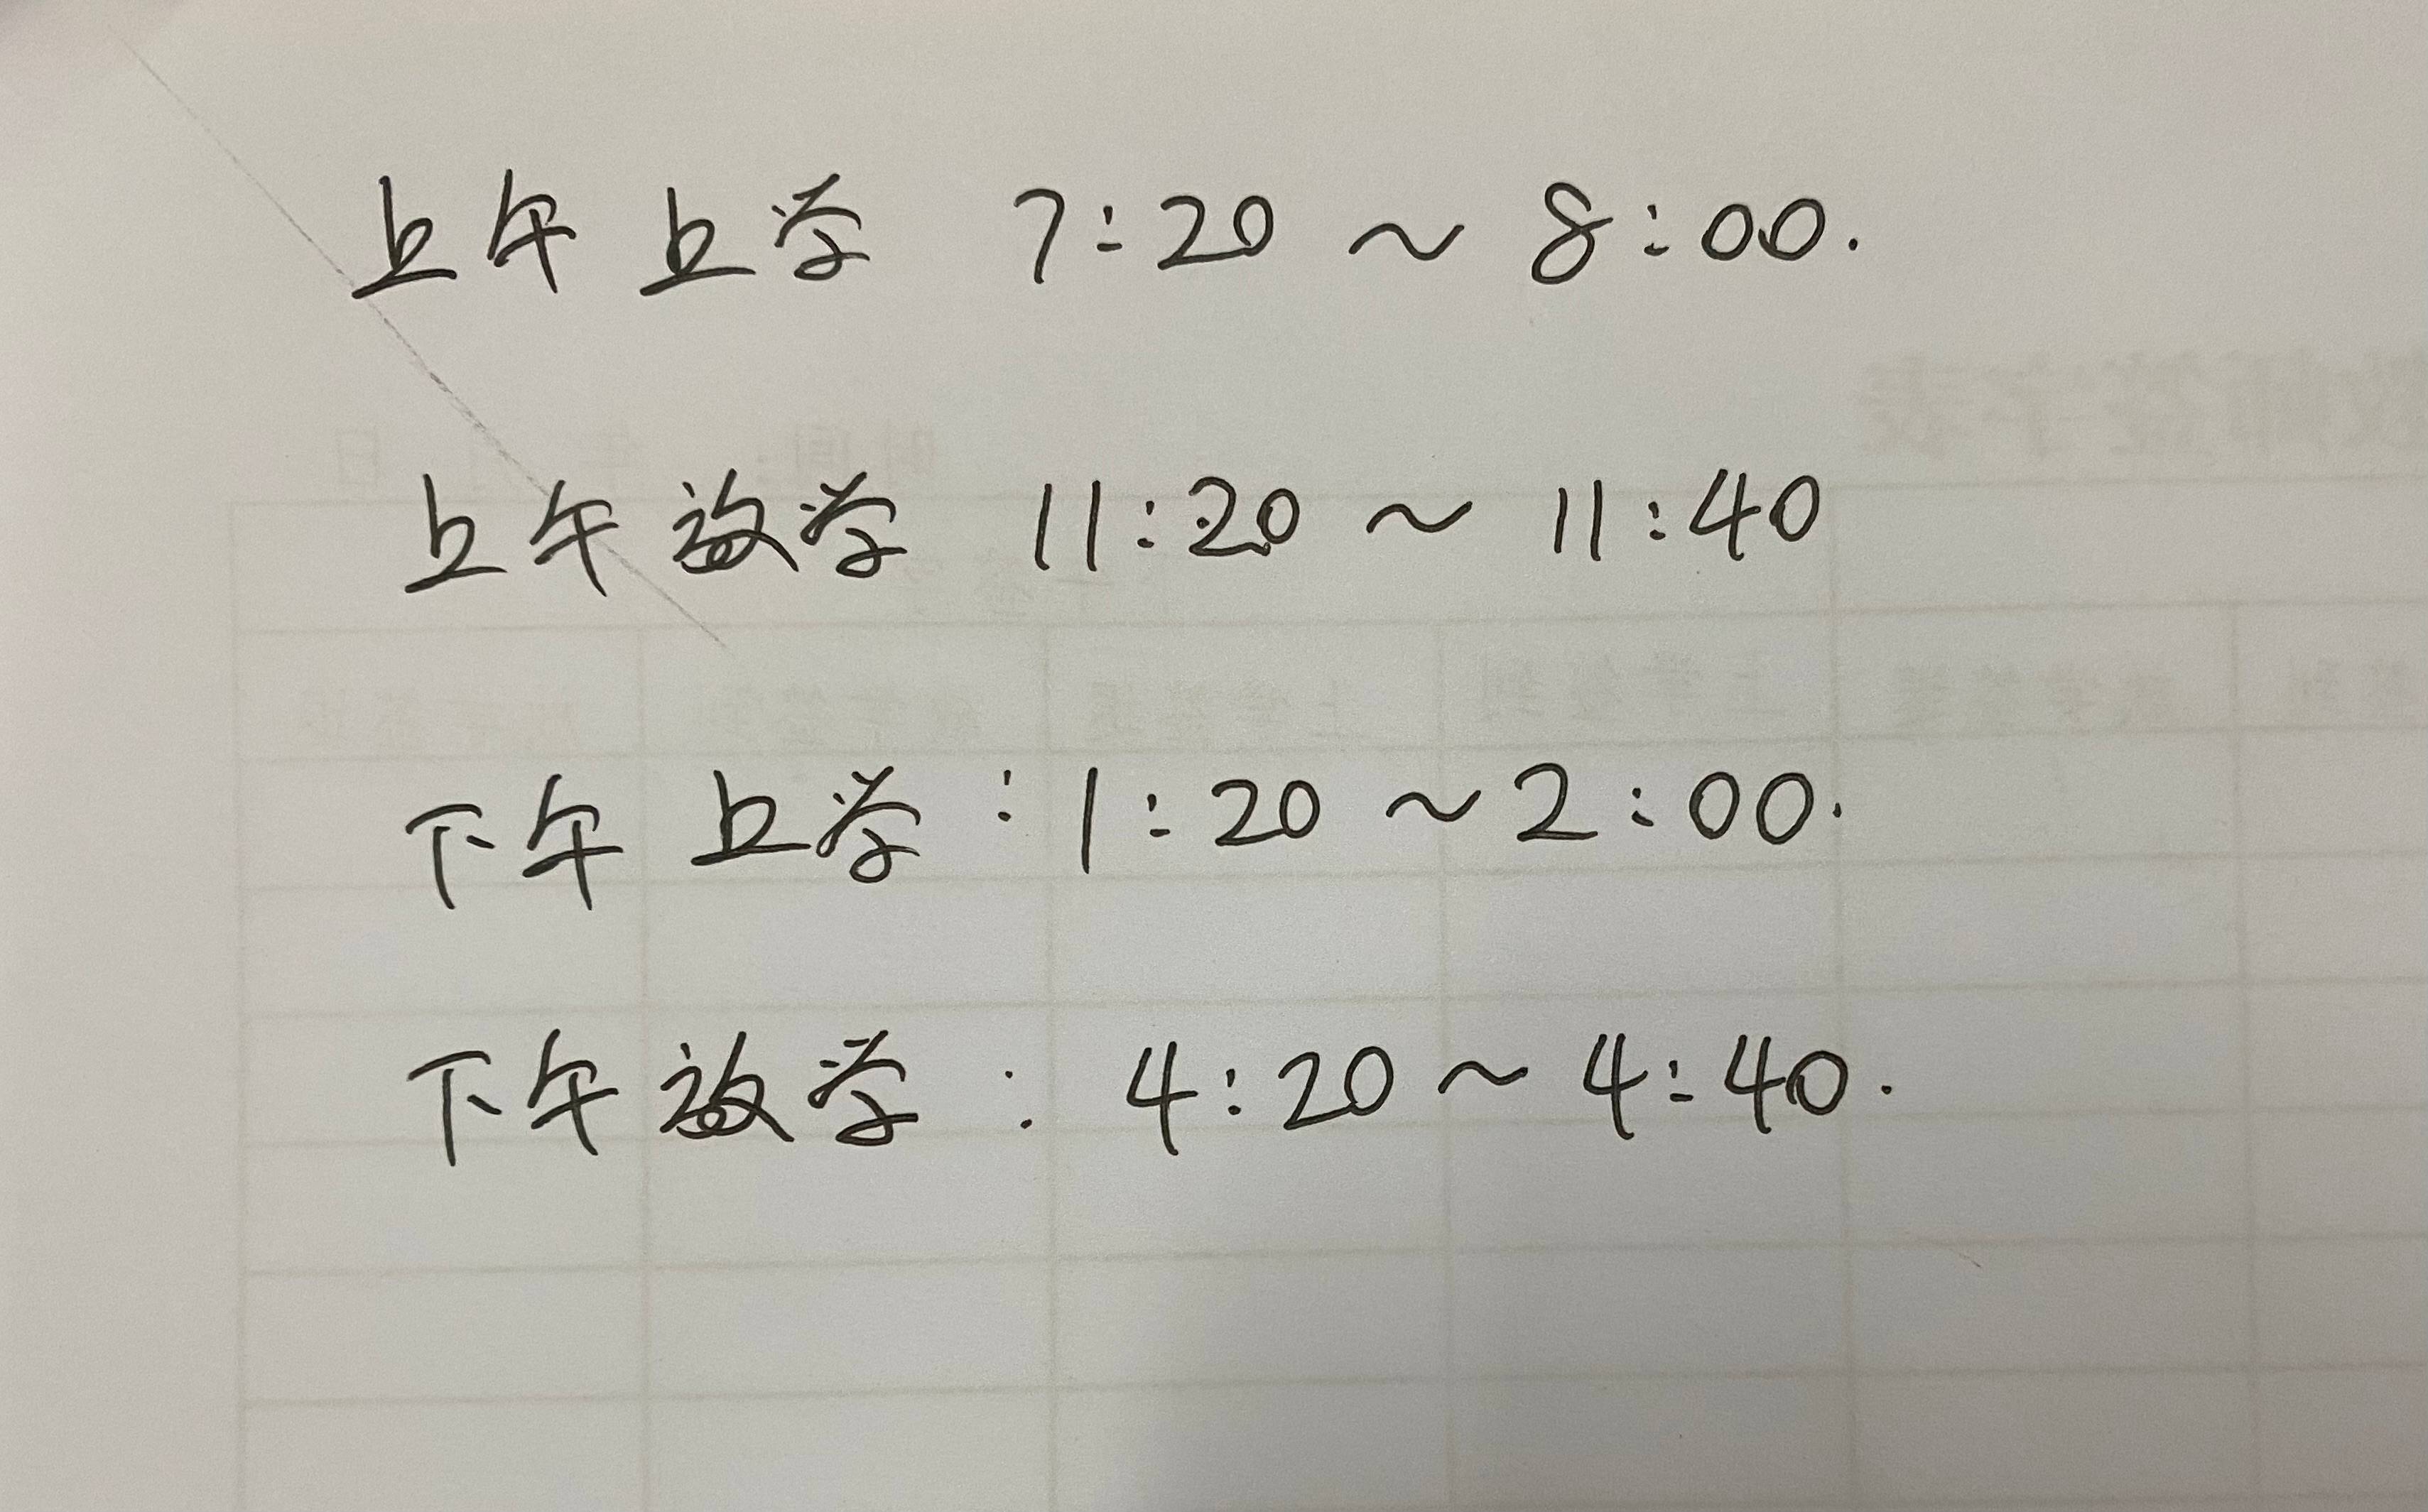 上午上学 7:20 ~ 8:00.
上午放学 11:20 ~ 11:40
下午上学:1:20 ~ 2:00.
下午放学:4:20 ~ 4:40.